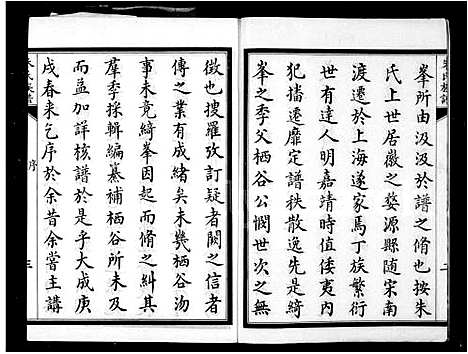 朱氏族譜
二
峯所由汲汲於譜之脩也按朱
氏上世居徽之婺源縣隨宋南
渡遷於上海遂家焉丁族繁衍
世有達人明嘉靖時倭夷內
犯播遷靡定譜秩散逸先是綺
峯之季父栖谷公憫世次之無
徵也搜羅攷訂疑者闕之信者
傳之業有成緒矣未幾栖谷沕
事未竟綺峯因起而脩之糾其
羣季採輯編纂補栖谷所未及
而益加詳核譜於是乎大成庚
戌春來乞序於余昔余嘗主講
朱氏族譜
序
三